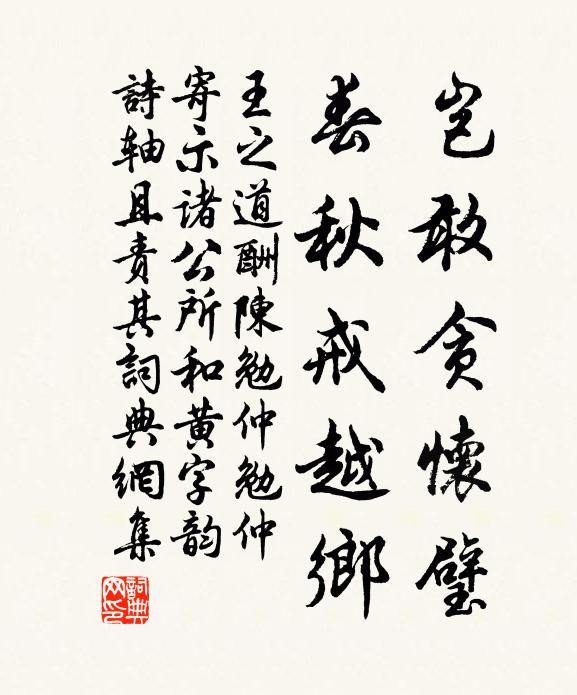 豈敢貪懷璧
春秋戒越鄉
王之道酬陳勉仲勉仲
寄示諸公所和黃字韵
詩軸且責其詞典網集
詞典網印